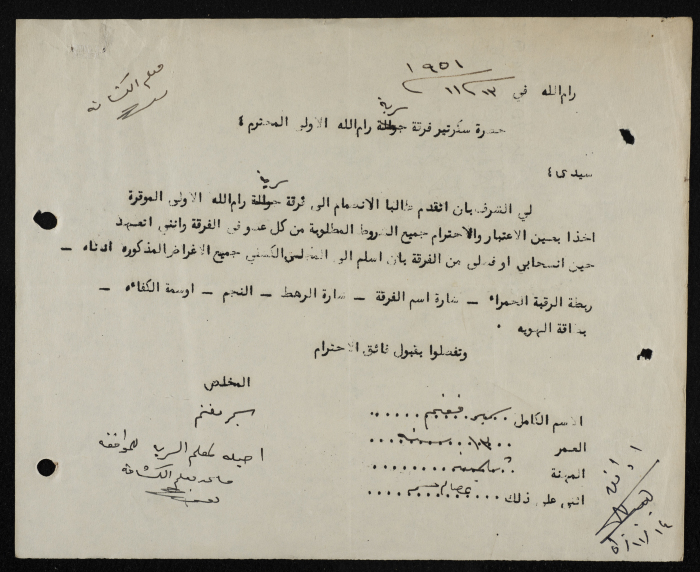 معلم الكشافة
رام الله في ١٣/١١ ١٩٥١
سرية
حضرة سكرتير فرقة جوالة رام الله الاولى المحترم ،
سيدي ،
سرية
لي الشرف بان اتقدم طالبا الانضمام الى فرقة جوالة رام الله الاولى الموقرة
اخذا بعين الاعتبار والاحترام جميع الشروط المطلوبة من كل عضو في الفرقة وانني اتعهد
حين انسحابي او فصلي من الفرقة بان اسلم الى المجلس الكشفي جميع الاغراض المذكوره ادناه –
ربطة الرقبة الحمراء – شارة اسم الفرقة – شارة الرهط – النجم – اوسمة الكفاءه –
بطاقة الهويه .
وتفضلوا بقبول فائق الاحترام
المخلص
سمير مغنم
الاسم الكامل سمير مغنم
العمر ١٣ سنة
المهنة
اثنى على ذلك عصام
احيله لمعلم السرية للموافقة
معلم الكشافة
١٤/١١/٥١